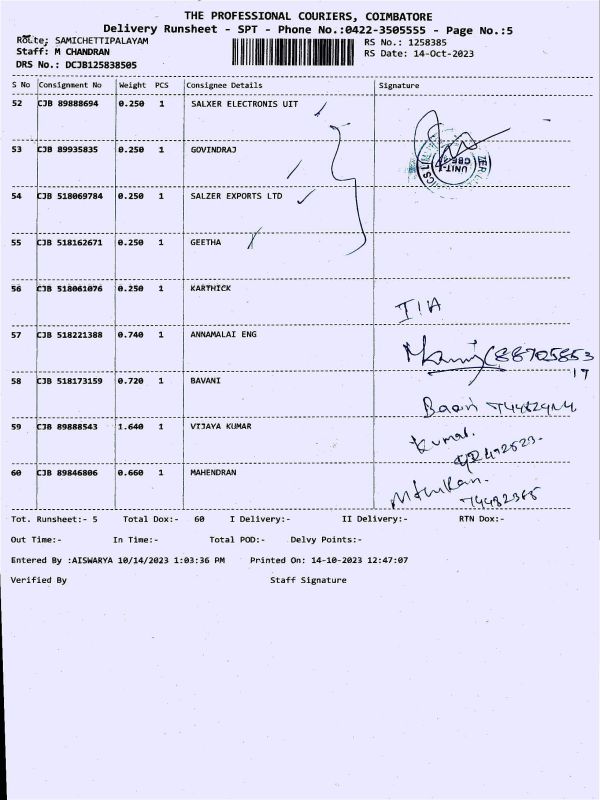 THE PROFESSIONAL COURIERS, COIMBATORE
Delivery Runsheet - SPT - Phone No.:0422-3505555 - Page No.:5
Route: SAMICHETTIPALAYAM
Staff: M CHANDRAN
DRS No.: DCJB125838505
RS No.: 1258385
RS Date: 14-Oct-2023
S No Consignment No Weight PCS Consignee Details Signature
52 CJB 89888694 0.250 1 SALXER ELECTRONIS UIT
53 CJB 89935835 0.250 1 GOVINDRAJ
UNIT-1
CBE
54 CJB 518069784 0.250 1 SALZER EXPORTS LTD
55 CJB 518162671 0.250 1 GEETHA
56 CJB 518061076 0.250 1 KARTHICK
57 CJB 518221388 0.740 1 ANNAMALAI ENG
17
58 CJB 518173159 0.720 1 BAVANI
59 CJB 89888543 1.640 1 VIJAYA KUMAR
Kumar.
60 CJB 89846806 0.660 1 MAHENDRAN
Tot. Runsheet:- 5 Total Dox:- 60 I Delivery:- II Delivery:- RTN Dox:-
Out Time:- In Time:- Total POD:- Delvy Points:-
Entered By :AISWARYA 10/14/2023 1:03:36 PM Printed On: 14-10-2023 12:47:07
Verified By Staff Signature